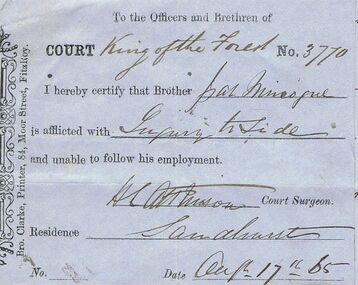 To the Officers and Brethren of
COURT King of the Forest No. 3770
I hereby certify that Brother
is afflicted with Injury to Side
and unable to follow his employment.
H L Atkinson Court Surgeon.
Residence Sandhurst
No. Date Augt 17th 65
Bro. Clarke, Printer, 84, Moor Street, Fitzroy.